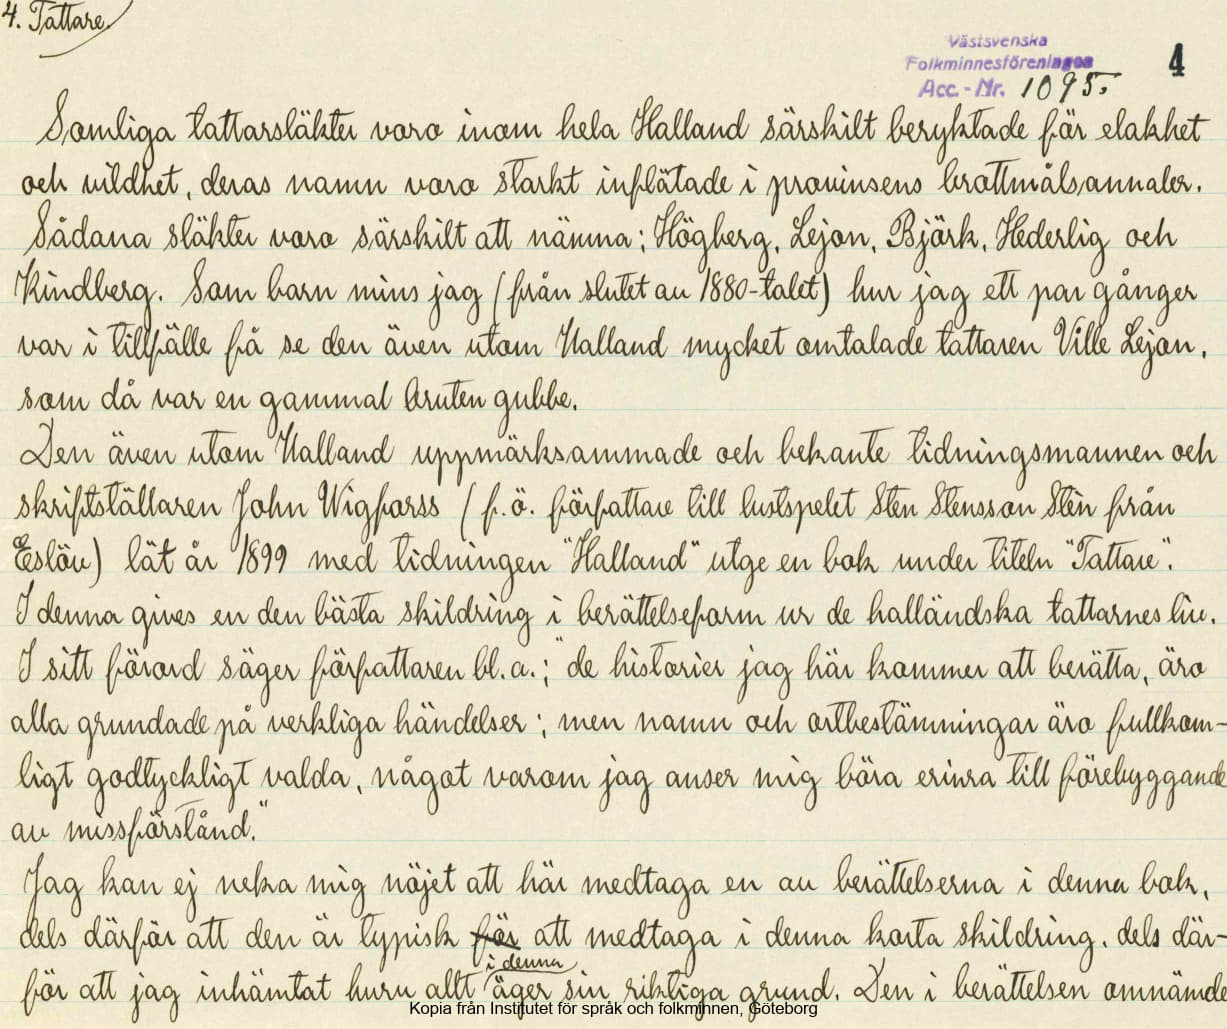 4. Tattare.
Västsvenska
Folkminnesföreningen
Acc.-Nr. 1095.
4
Somliga tattarsläkter voro inom hela Halland särskilt beryktade för elakhet
och vildhet, deras namn voro starkt inflätade i provinsens brottmålsannaler.
Sådana släkter voro särskilt att nämna; Högberg, Lejon, Björk, Hederlig och
Kindberg. Som barn mins jag (från slutet av 1880-talet) hur jag ett par gånger
var i tillfälle få se den även utom Halland mycket omtalade tattaren Ville Lejon,
som då var en gammal bruten gubbe.
Den även utom Halland uppmärksammade och bekante tidningsmannen och
skriftställaren John Wigforss (f.ö. författare till lustspelet Sten Stensson Stèn från
Eslöv) lät år 1899 med tidningen "Halland" utge en bok under titeln "Tattare".
I denna gives en den bästa skildring i berättelseform ur de halländska tattarnes liv.
I sitt förord säger författaren bl.a.; "de historier jag här kommer att berätta, äro
alla grundade på verkliga händelser; men namn och ortbestämningar äro fullkom-
ligt godtyckligt valda, något varom jag anser mig böra erinra till förebyggande
av missförstånd."
Jag kan ej neka mig nöjet att här medtaga en av berättelserna i denna bok,
dels därför att den är typisk för att medtaga i denna korta skildring, dels där-
för att jag inhämtat huru allt i denna äger sin riktiga grund. Den i berättelsen omnämde
Kopia från Institutet för språk och folkminnen, Göteborg